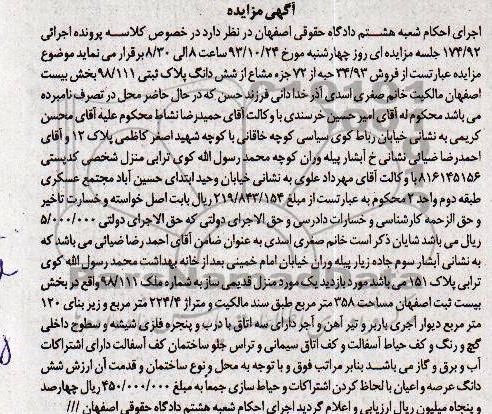 آگهی مزایده
اجرای احکام شعبه هشتم دادگاه حقوقی اصفهان در نظر دارد در خصوص کلاسه پرونده اجرائی
۱۷۴/۹۲ جلسه مزایده ای روز چهارشنبه مورخ ۹۳/۱۰/۲۴ ساعت ۸ الی ۸/۳۰ برقرار می نماید موضوع
مزایده عبارتست از فروش ۳۴/۹۳ حبه از ۷۲ جزء مشاع از شش دانگ پلاک ثبتی ۹۸/۱۱۱ بخش بیست
اصفهان مالکیت خانم صغری اسدی آذرخدادانی فرزند حسن که در حال حاضر محل در تصرف نامبرده
می باشد محکوم له آقای امیر حسین خرسندی با وکالت آقای حمیدرضا نشاط محکوم علیه آقای محسن
کریمی به نشانی خیابان رباط کوی سیاسی کوچه خاقانی با کوچه شهید اصغر کاظمی پلاک ۱۲ و آقای
احمدرضا ضیائی نشانی خ آبشار پیله وران کوچه محمد رسول الله کوی ترابی منزل شخصی کدپستی
۸۱۶۱۴۵۱۵۶ با وکالت آقای مهرداد علوی به نشانی خیابان وحید ابتدای حسین آباد مجتمع عسکری
طبقه دوم واحد ۲ محکوم به عبارتست از مبلغ ۲۱۹/۸۴۳/۱۵۴ ریال بابت اصل خواسته و خسارت تاخیر
و حق الزحمه کارشناسی و خسارات دادرسی و حق الاجرای دولتی که حق الاجرای دولتی ۵/۰۰۰/۰۰۰
ریال می باشد شایان ذکر است خانم صغری اسدی به عنوان ضامن آقای احمد رضا ضیائی می باشد که
به نشانی آبشار سوم جاده زیار پیله وران خیابان امام خمینی بعد از خانه بهداشت محمد رسول الله کوی
ترابی پلاک ۱۵۱ می باشد مورد بازدید یک مورد منزل قدیمی ساز به شماره ملک ۹۸/۱۱۱ واقع در بخش
بیست ثبت اصفهان مساحت ۳۵۸ متر مربع طبق سند مالکیت و متراژ ۲۲۴/۴ متر مربع و زیر بنای ۱۲۰
متر مربع دیوار آجری باربر و تیر آهن و آجر دارای سه اتاق با درب و پنجره فلزی شیشه و سطوح داخلی
گچ و رنگ و کف حیاط آسفالت و کف اتاق سیمانی و تراس جلو ساختمان کف آسفالت دارای اشتراکات
آب و برق و گاز می باشد بنابر مراتب فوق و با توجه به محل و نوع ساختمان و قدمت آن ارزش شش
دانگ عرصه و اعیان با لحاظ کردن اشتراکات و حیاط سازی جمعاً به مبلغ ۴۵۰/۰۰۰/۰۰۰ ریال چهارصد
و پنجاه میلیون ریال ارزیابی و اعلام گردید اجرای احکام شعبه هشتم دادگاه حقوقی اصفهان ///